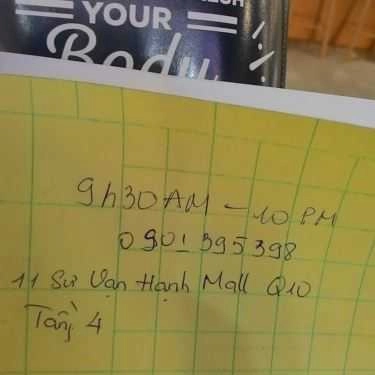 YOUR
Body
9h30AM - 10PM
0901395398
11 Sư Vạn Hạnh Mall Q10
Tầng 4